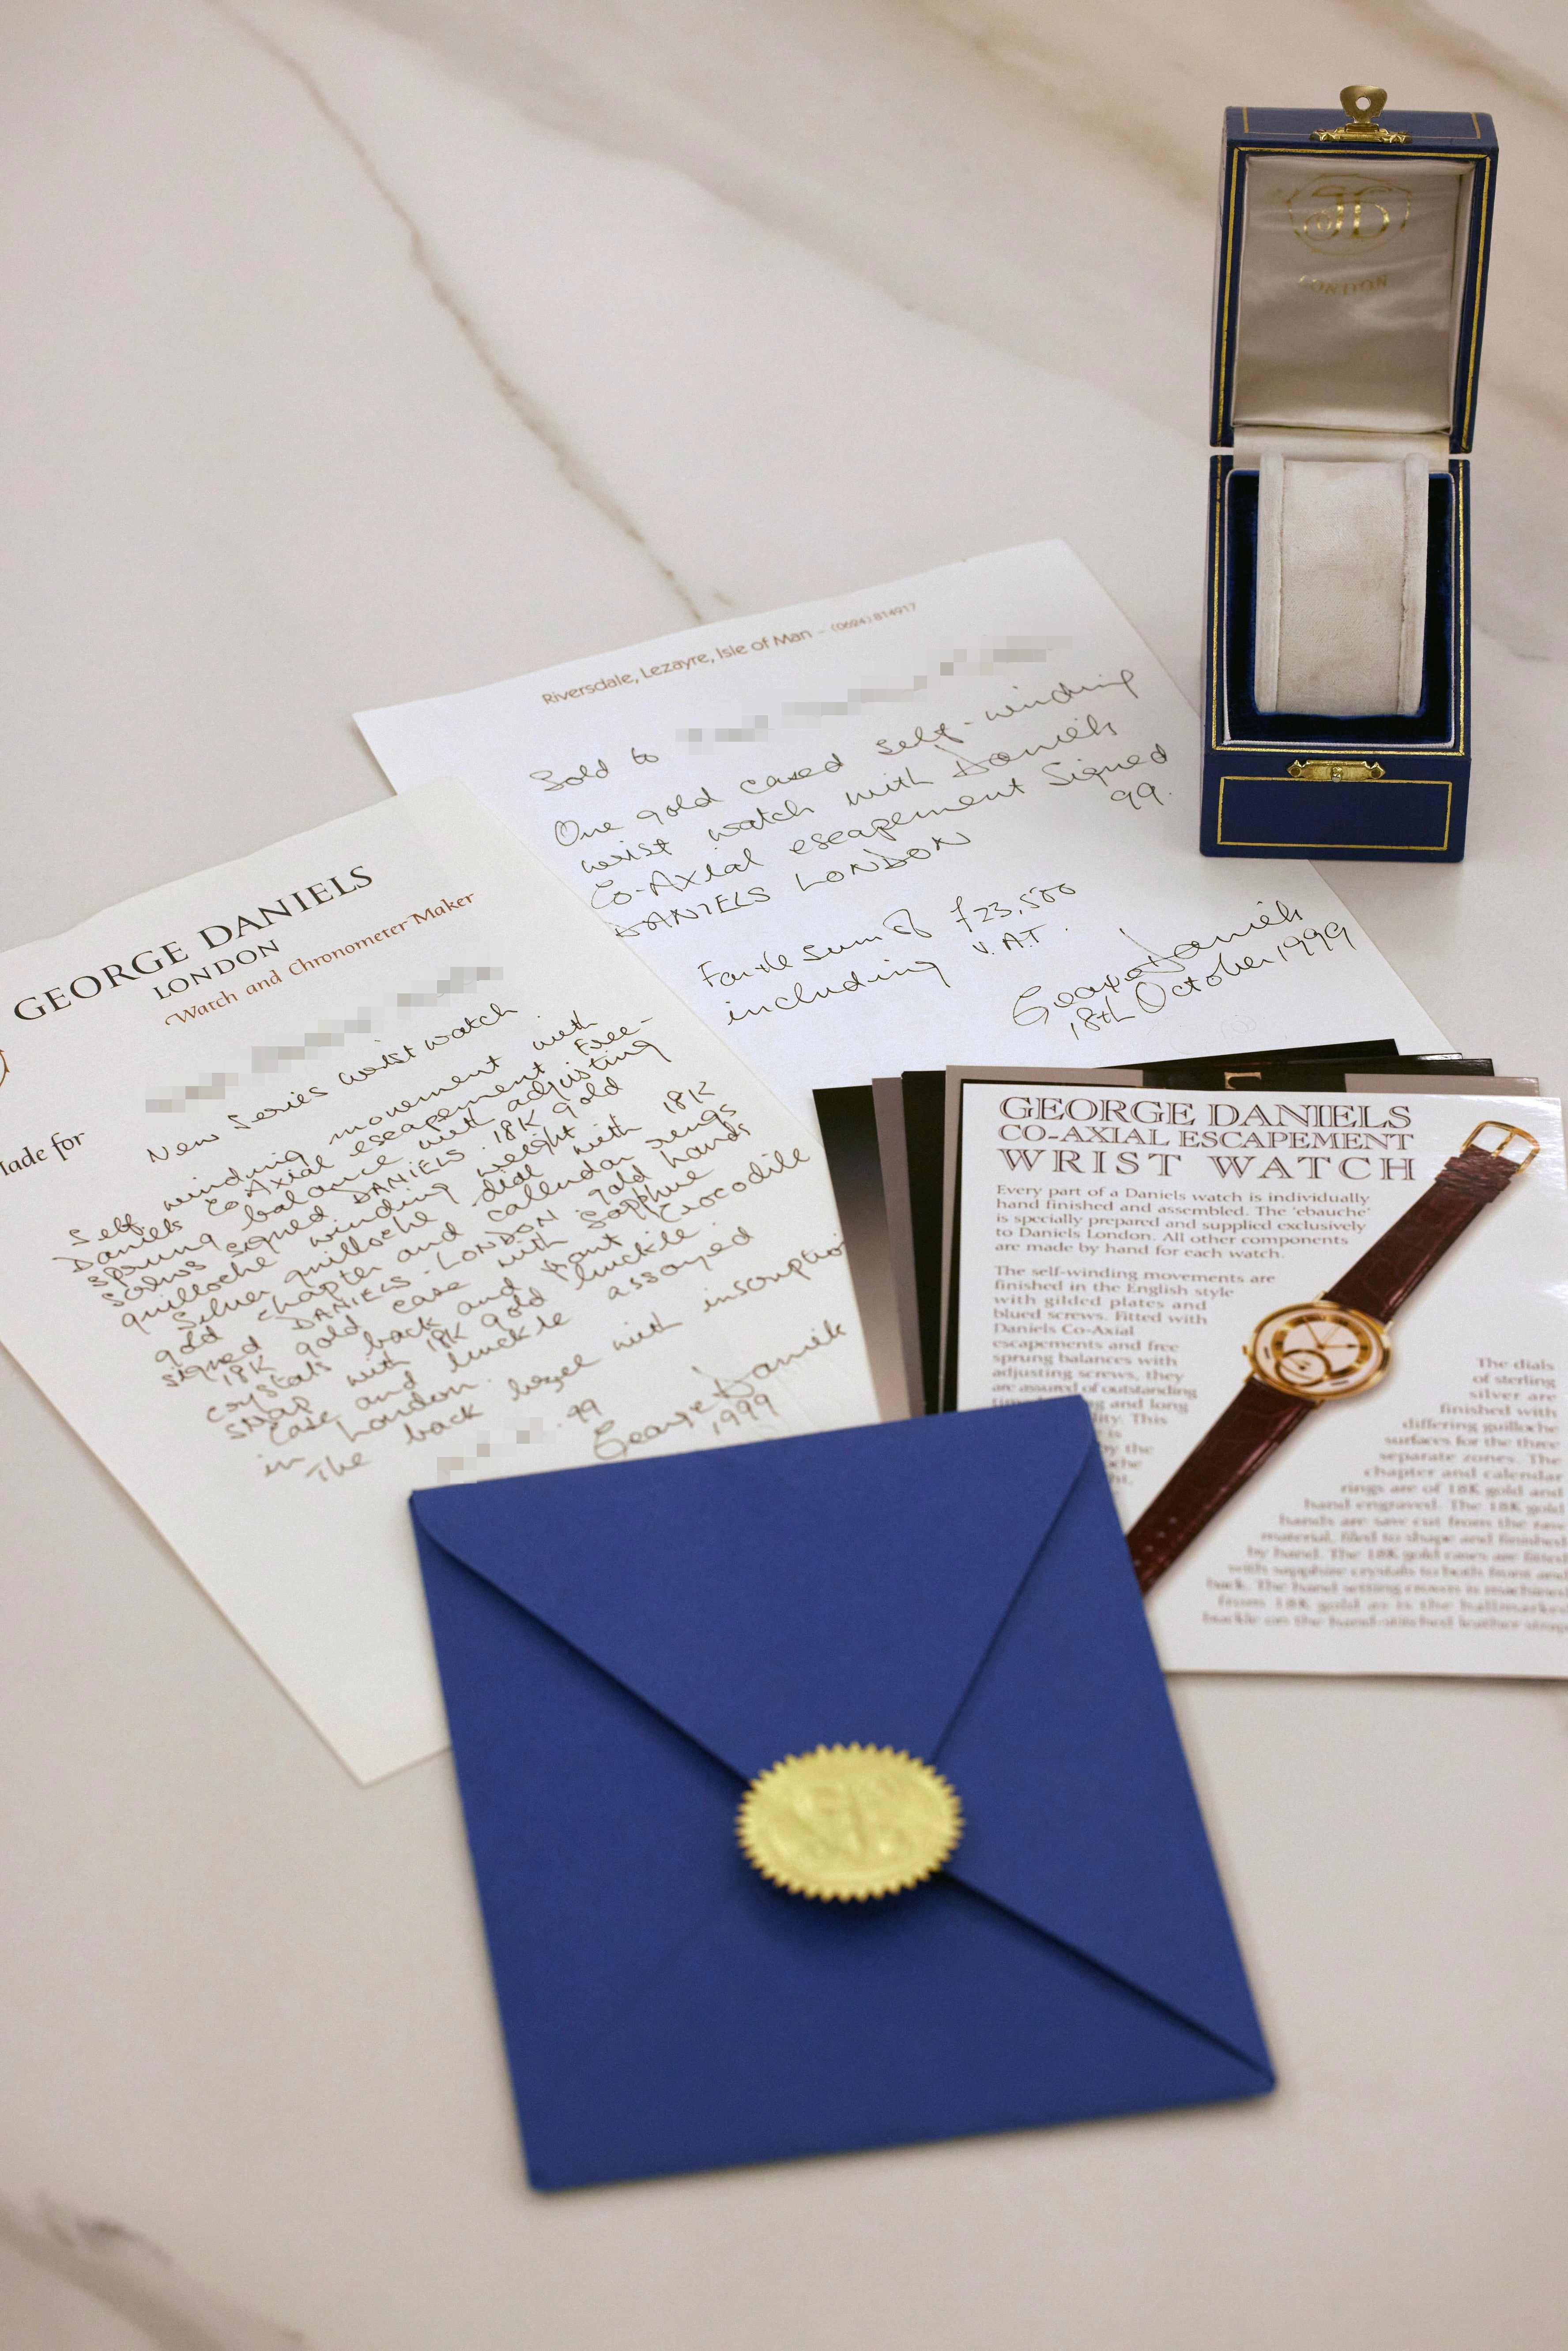 JD
LONDON
Riversdale, Lezayre, Isle of Man - (0624) 814917
Sold to
One gold cased self-winding
wrist watch with Daniels
Co-Axial escapement Signed
DANIELS LONDON 99.
For the sum of £23,500
including V.A.T.
George Daniels
18th October 1999
GEORGE DANIELS
LONDON
Watch and Chronometer Maker
Made for
New Series wrist watch
Self-winding movement with
Daniels Co-Axial escapement Free-
sprung balance with adjusting
screws signed DANIELS. 18K gold
guilloche winding weight
Silver guilloche dial with 18K
gold chapter and callendar rings
signed DANIELS. LONDON. gold hands
18K gold case with Sapphire
crystals back and front Crocodile
strap with 18K gold buckle
Case and buckle assayed
in London.
The back bezel with inscription
.99
George Daniels
1999
GEORGE DANIELS
CO-AXIAL ESCAPEMENT
WRIST WATCH
Every part of a Daniels watch is individually
hand finished and assembled. The 'ebauche'
is specially prepared and supplied exclusively
to Daniels London. All other components
are made by hand for each watch.
The self-winding movements are
finished in the English style
with gilded plates and
blued screws. Fitted with
Daniels Co-Axial
escapements and free
sprung balances with
adjusting screws, they
are assured of outstanding
and long
This
is
by the
The dials
of sterling
silver are
finished with
differing guilloche
surfaces for the three
separate zones. The
chapter and calendar
rings are of 18K gold and
hand engraved. The 18K gold
hands are saw cut from the raw
material, filed to shape and finished
by hand. The 18K gold cases are fitted
with sapphire crystals to both front and
back. The hand setting crown is machined
from 18K gold as is the hallmarked
buckle on the hand-stitched leather strap